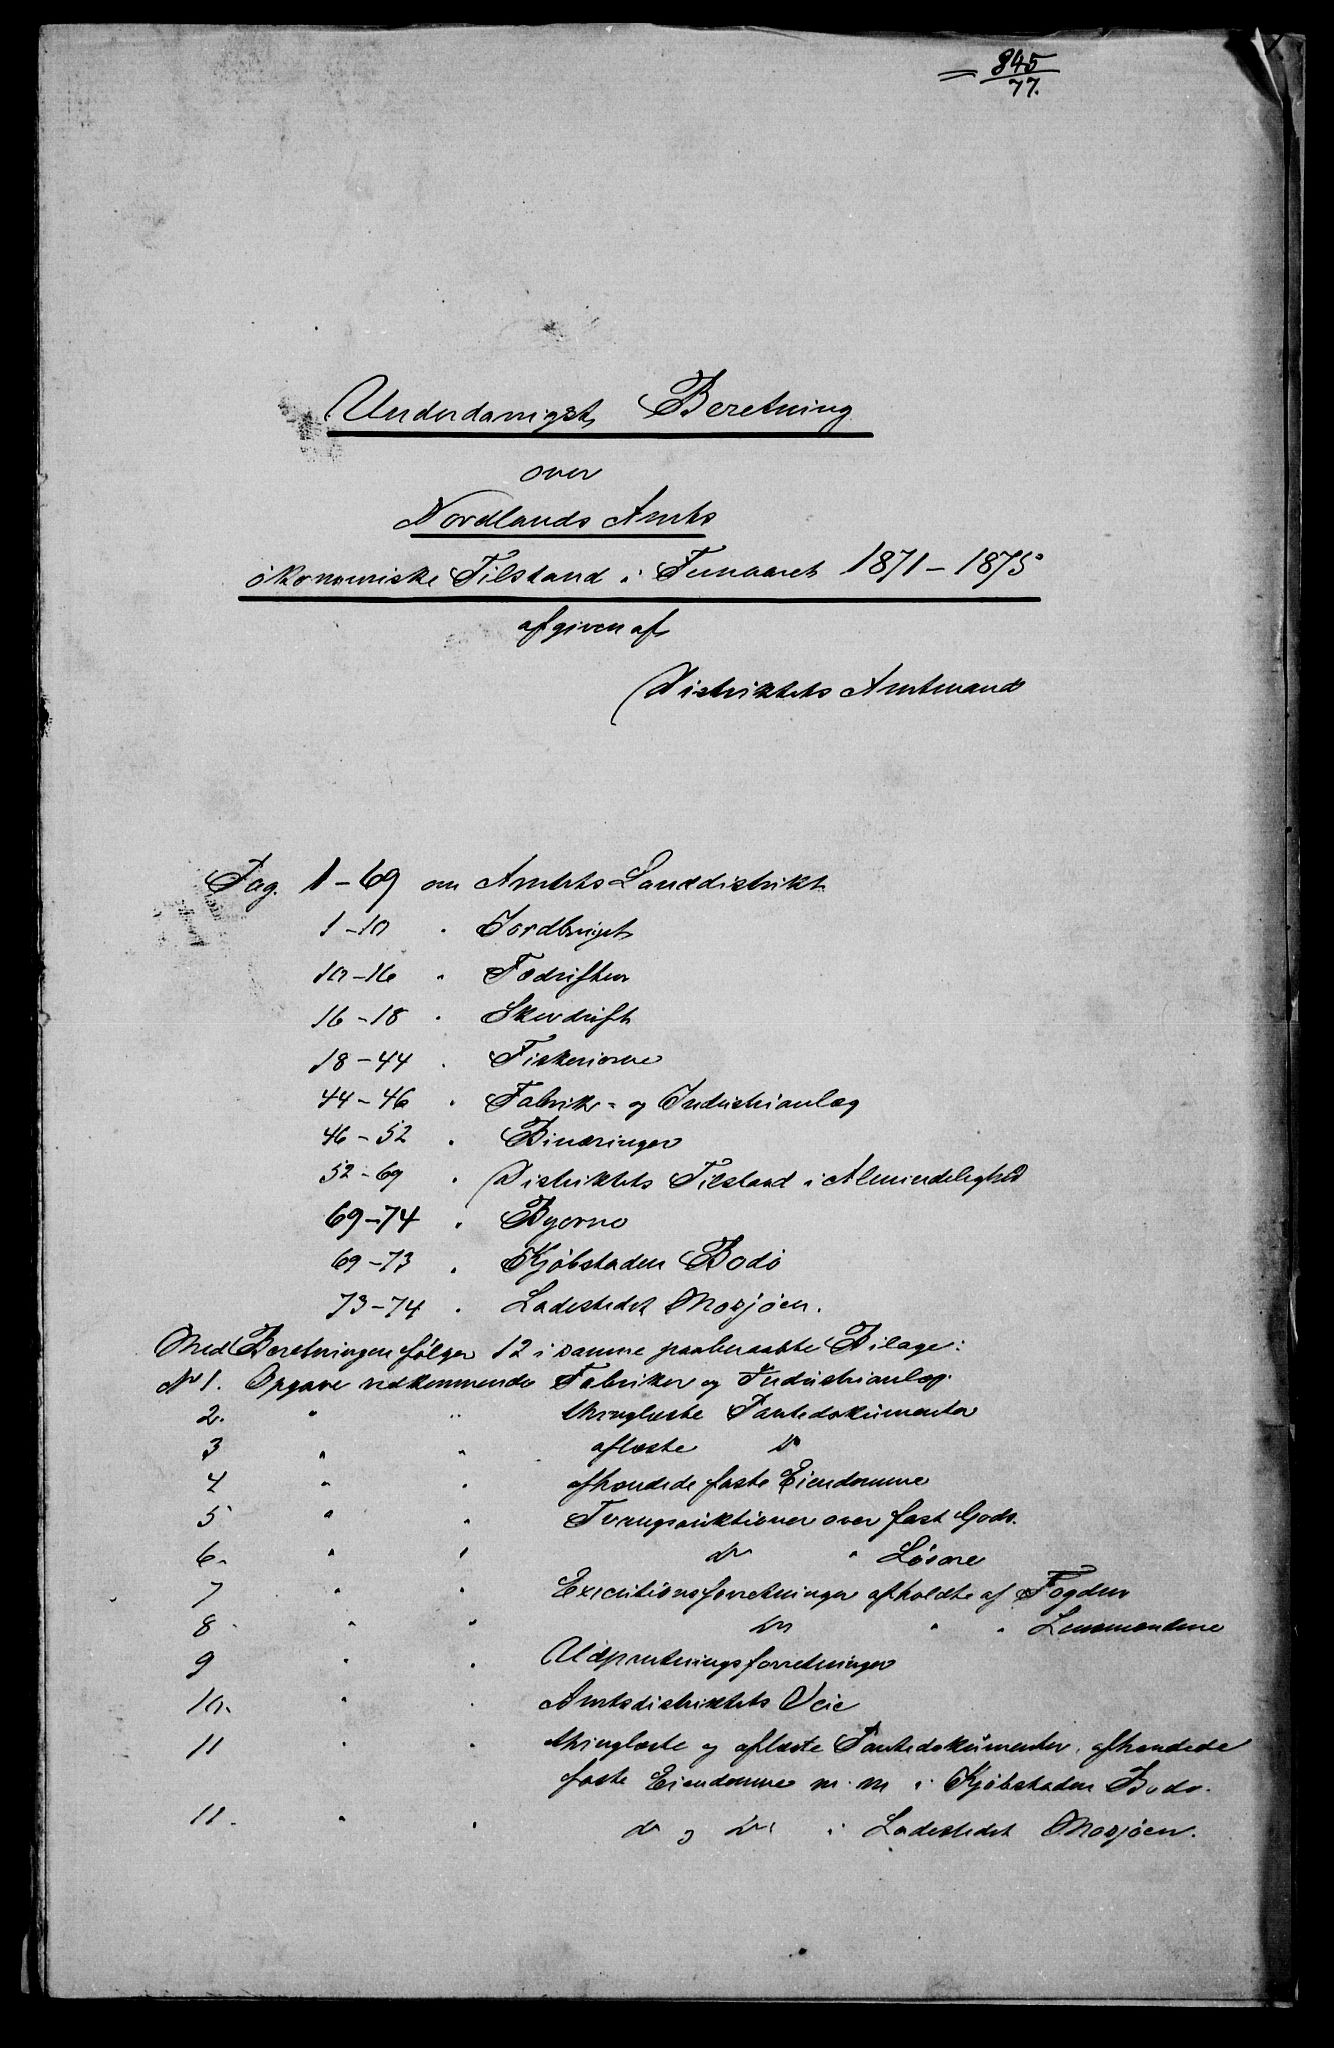 845
77.
Underdanigst Beretning
over
Nordlands Amts
økonomiske Tilstand i Femaaret 1871–1875
afgiven af
Distriktets Amtmand
Pag. 1–69 om Amtets Landdistrikt
1–10 " Jordbruget
10–16 " Fædriften
16–18 " Skovdrift
18–44 " Fiskerierne
44–46 " Fabrik- og Industrianlæg
46–52 " Binæringer
52–69 " Distriktets Tilstand i Almindelighed
69–74 " Byerne
69–73 " Kjøbstaden Bodø
73–74 " Ladestedet Mosjøen.
Med Beretningen følger 12 i samme paaberaabte Bilage:
No 1. Opgave vedkommende Fabriker og Industrianlæg.
2. " " thinglæste Pantedokumenter
3 " " aflæste Do
4 " " afhændede faste Eiendomme
5 " " Tvangsauktioner over fast Gods.
6. " " Do " Løsøre
7 " " Executionsforretninger afholdte af Fogden
8 " " Do " " Lensmændene
9 " " Udpantningsforretninger
10. " " Amtsdistriktets Veie
11 " " thinglæste og aflæste Pantedokumenter, afhændede
faste Eiendomme m. m. i Kjøbstaden Bodø.
11. " " do og Do i Ladestedet Mosjøen.